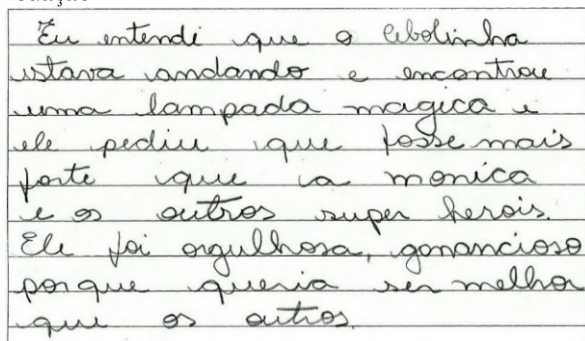 Eu entendi que o cebolinha
estava andando e encontrou
uma lampada magica e
ele pediu que fosse mais
forte que a monica
e os outros super herois.
Ele foi orgulhosa, gonancioso
porque queria ser melhor
que os outros.